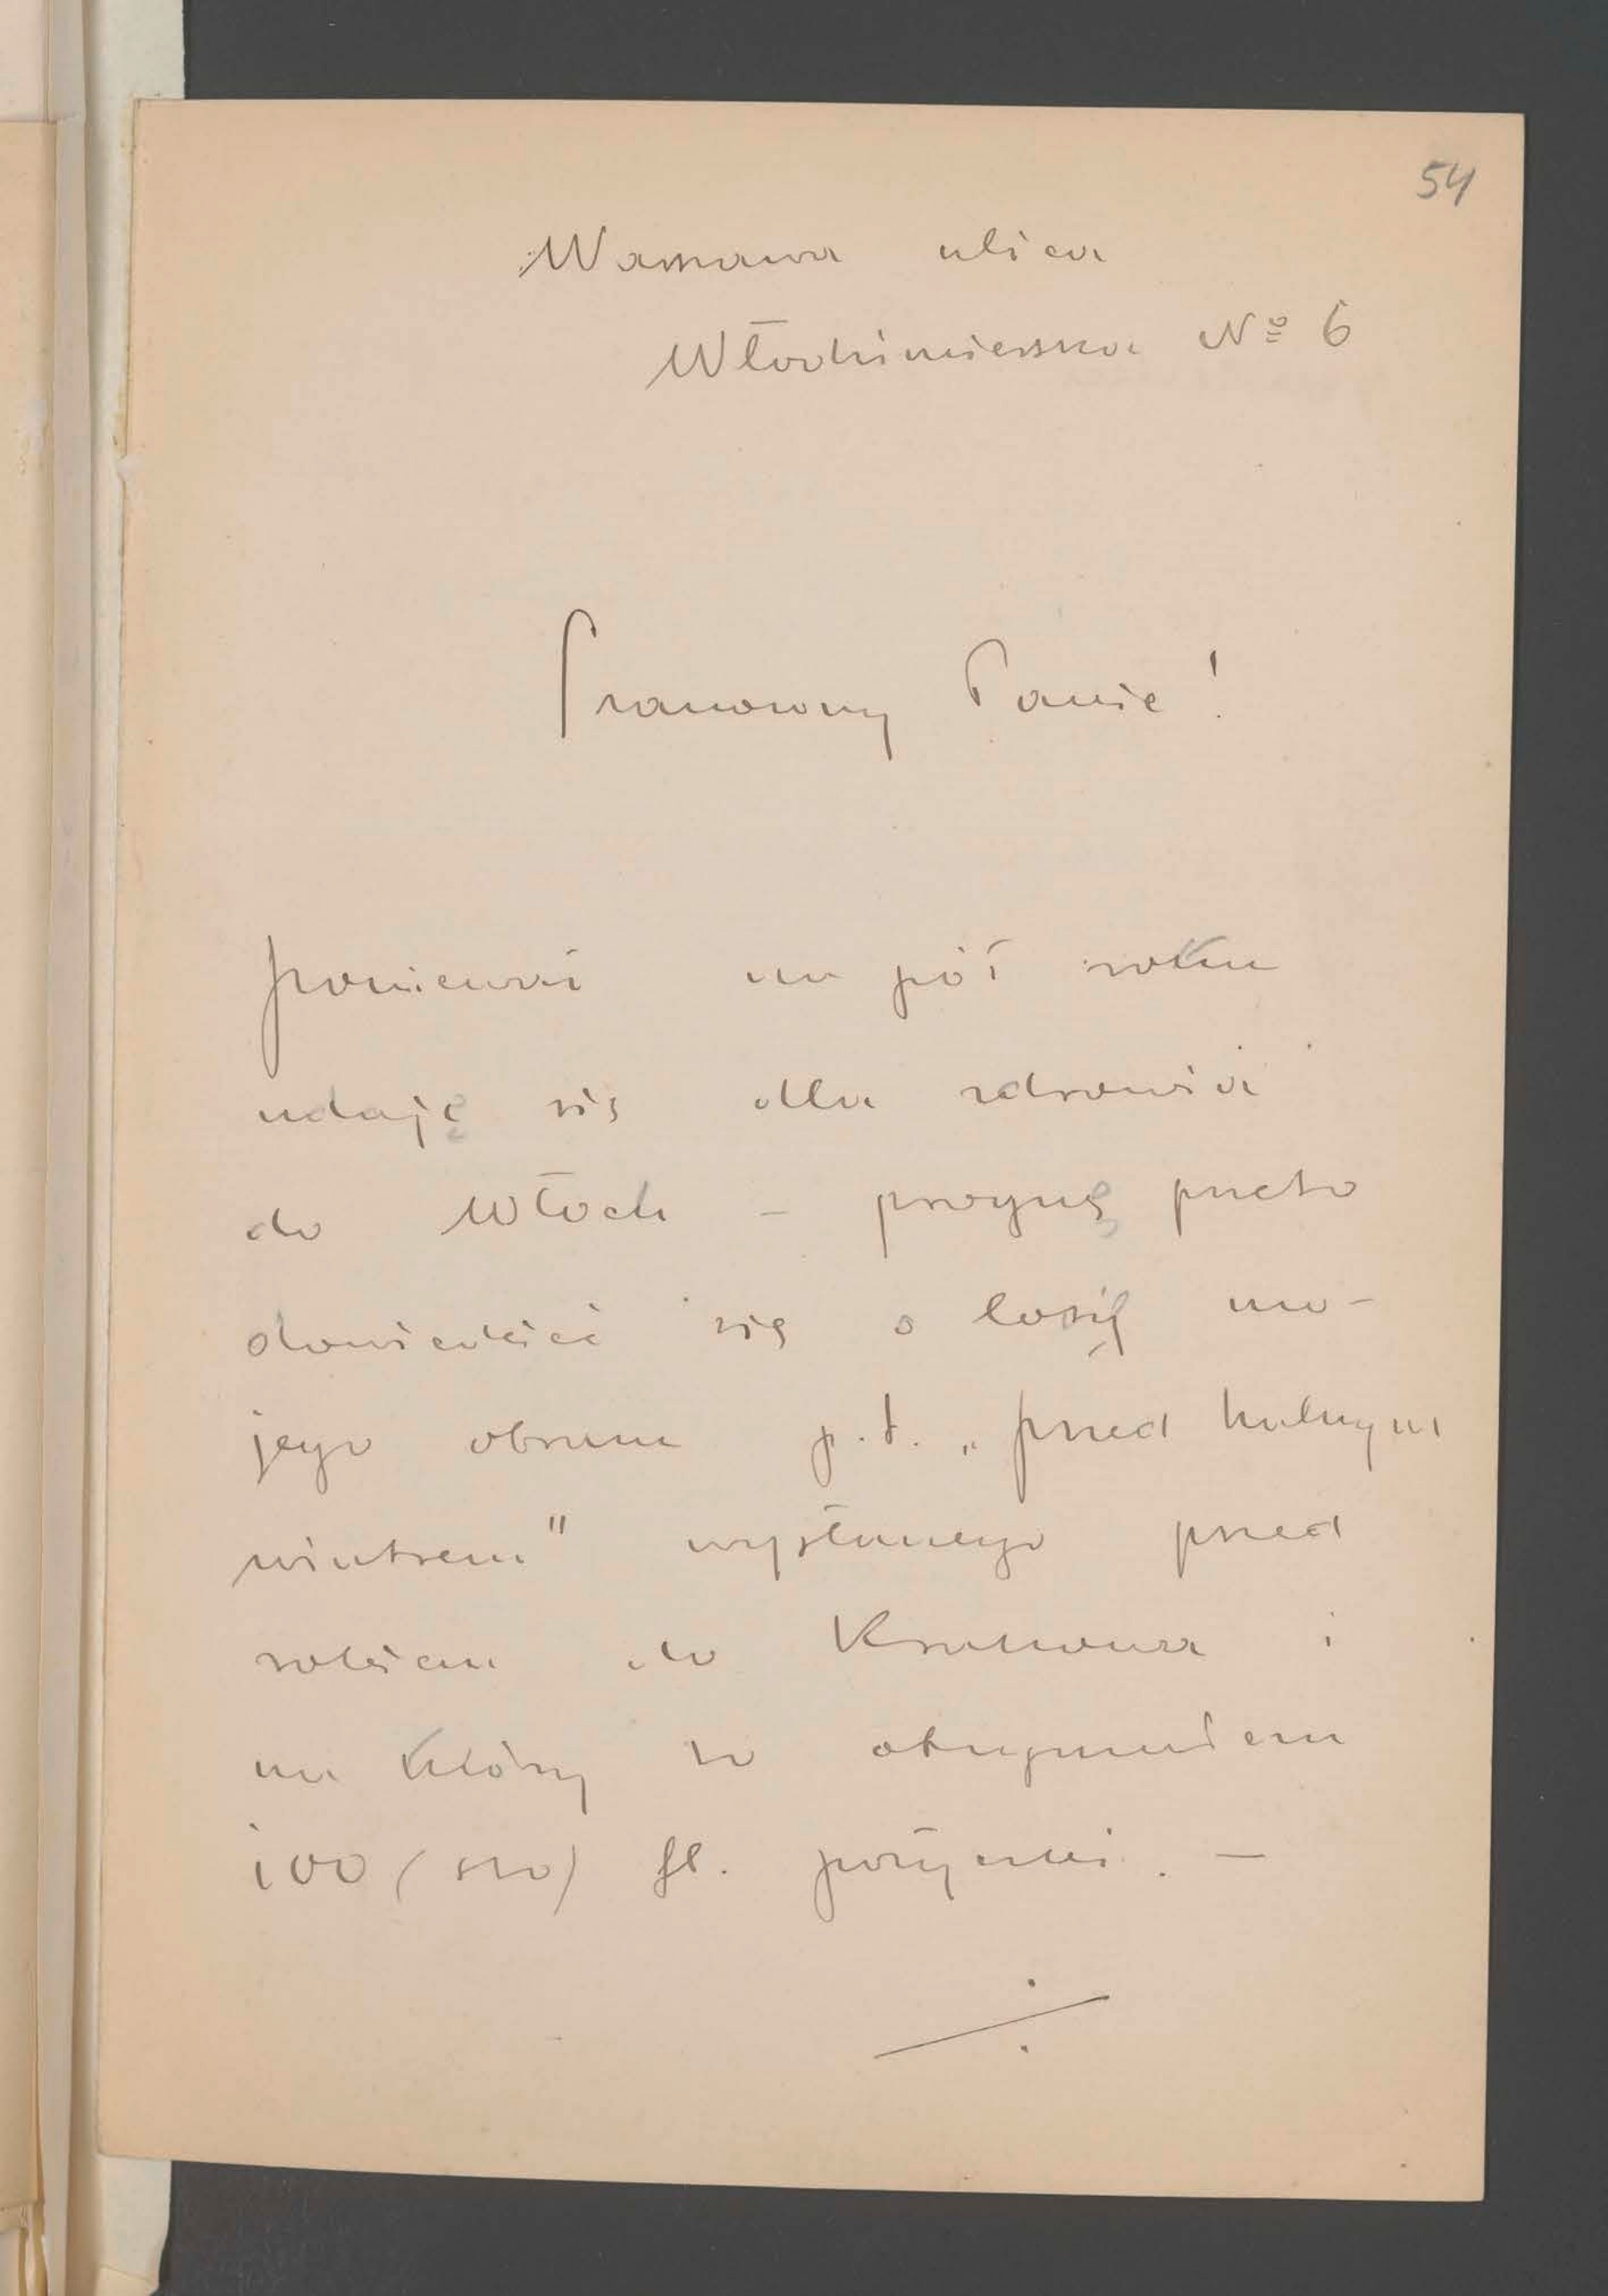 54
Warszawa ulica
Włodzimierska № 6
Szanowny Panie!
ponieważ na pół roku
udaję się dla zdrowia
do Włoch – pragnę przeto
dowiedzieć się o losie mo-
jego obrazu p.t. „przed halnym
wiatrem" wysłanego przed
rokiem do Krakowa i
na który to otrzymałem
100 (sto) fl. pożyczki. –